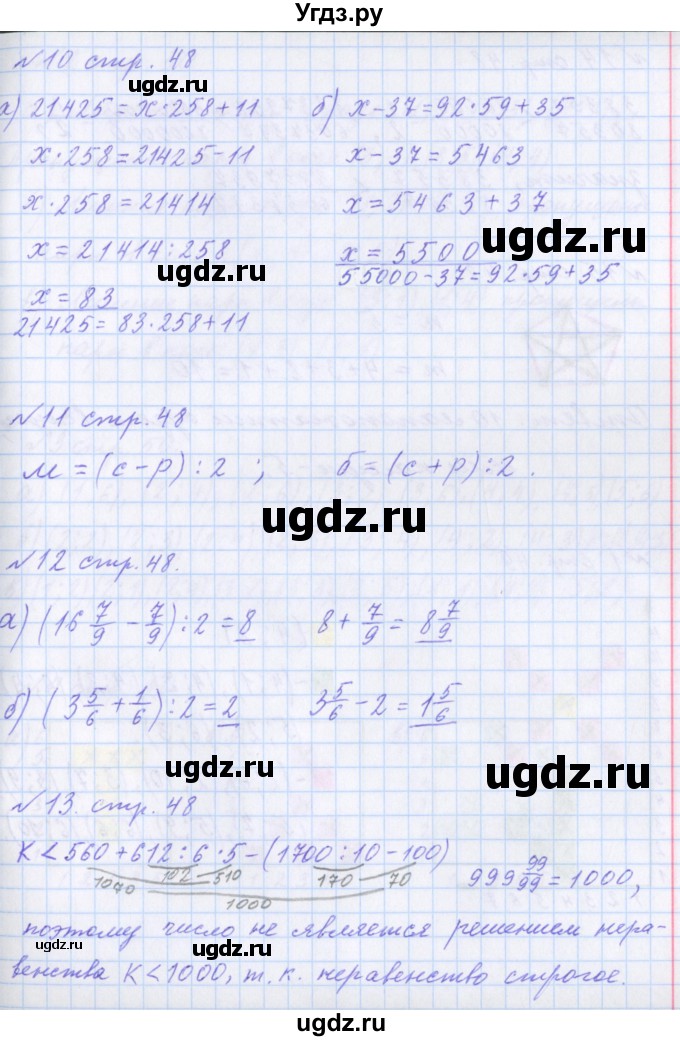 Угдз.ру
№10 стр. 48
а) 21425 = x·258+11
x·258 = 21425-11
x·258 = 21414
x = 21414:258
x = 83
21425 = 83·258+11
б) x-37 = 92·59+35
x-37 = 5463
x = 5463+37
x = 5500
55000-37 = 92·59+35
№11 стр. 48
м = (с-р):2 ; б = (с+р):2.
№12 стр. 48.
а) (16 7/9 - 7/9):2 = 8 8 + 7/9 = 8 7/9
б) (3 5/6 + 1/6):2 = 2 3 5/6 - 2 = 1 5/6
№13. стр. 48
K < 560+612:6·5-(1700:10-100)
102 510 170 70
1070
1000
999 99/99 = 1000,
поэтому число не является решением нера-
венства K<1000, т.к. неравенство строгое.
ugdz.ru
ugdz.ru
ugdz.ru
ugdz.ru
ugdz.ru
ugdz.ru
ugdz.ru
ugdz.ru
ugdz.ru
ugdz.ru
ugdz.ru